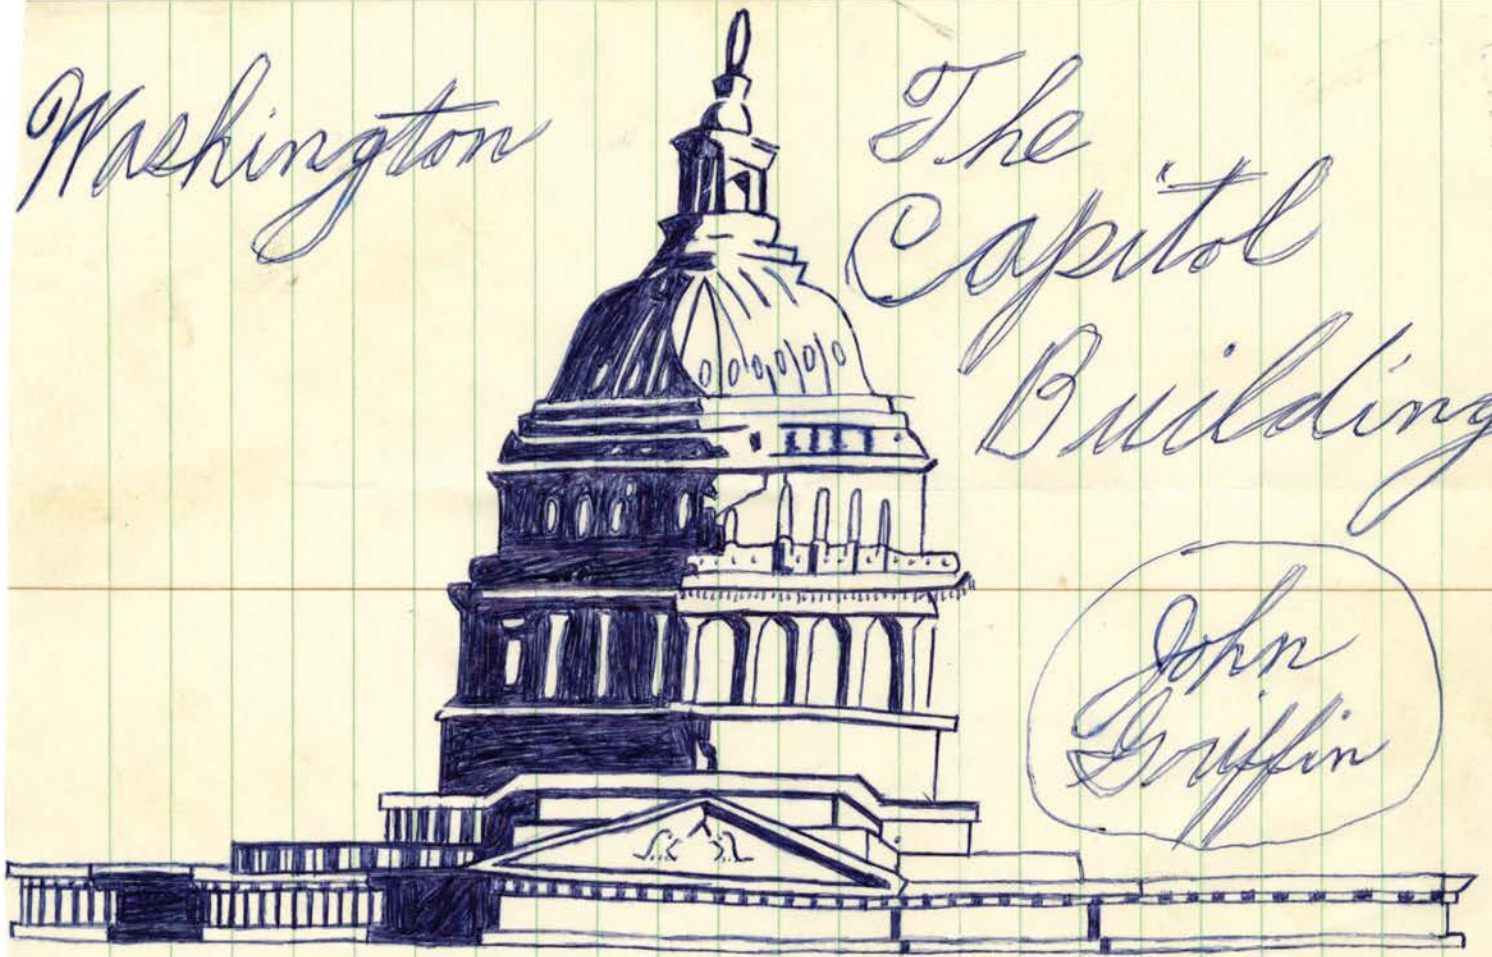 Washington
The
Capitol
Building
John
Griffin